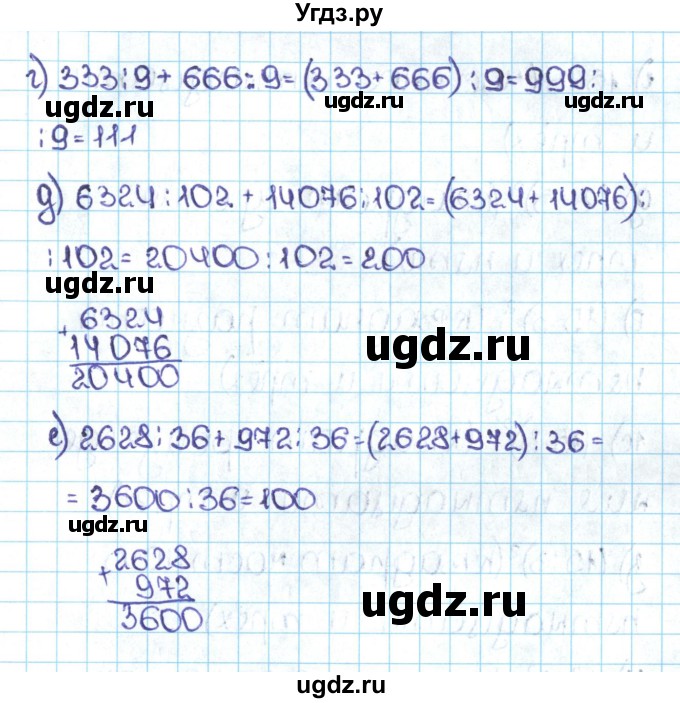 Угдз.ру
г) 333:9+ 666:9=(333+666):9=999:
ugdz.ru ugdz.ru ugdz.ru
:9=111
д) 6324:102+14076:102=(6324+14076):
ugdz.ru
:102=20400:102=200
ugdz.ru
+6324
14076
20400
ugdz.ru
е) 2628:36+972:36=(2628+972):36=
=3600:36=100
ugdz.ru
+2628
972
3600
ugdz.ru
ugdz.ru